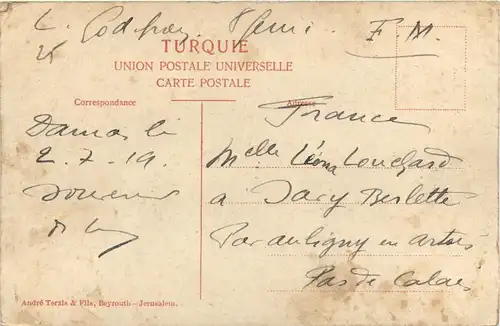 F.M.
TURQUIE
UNION POSTALE UNIVERSELLE
CARTE POSTALE
Correspondance
Adresse
France
Damas le
2.7.19.
souvenir
Melle Léona Louchard
à Sary Berlette
Par aubigny en artois
Pas de Calais
André Terzis & Fils, Beyrouth—Jerusalem.